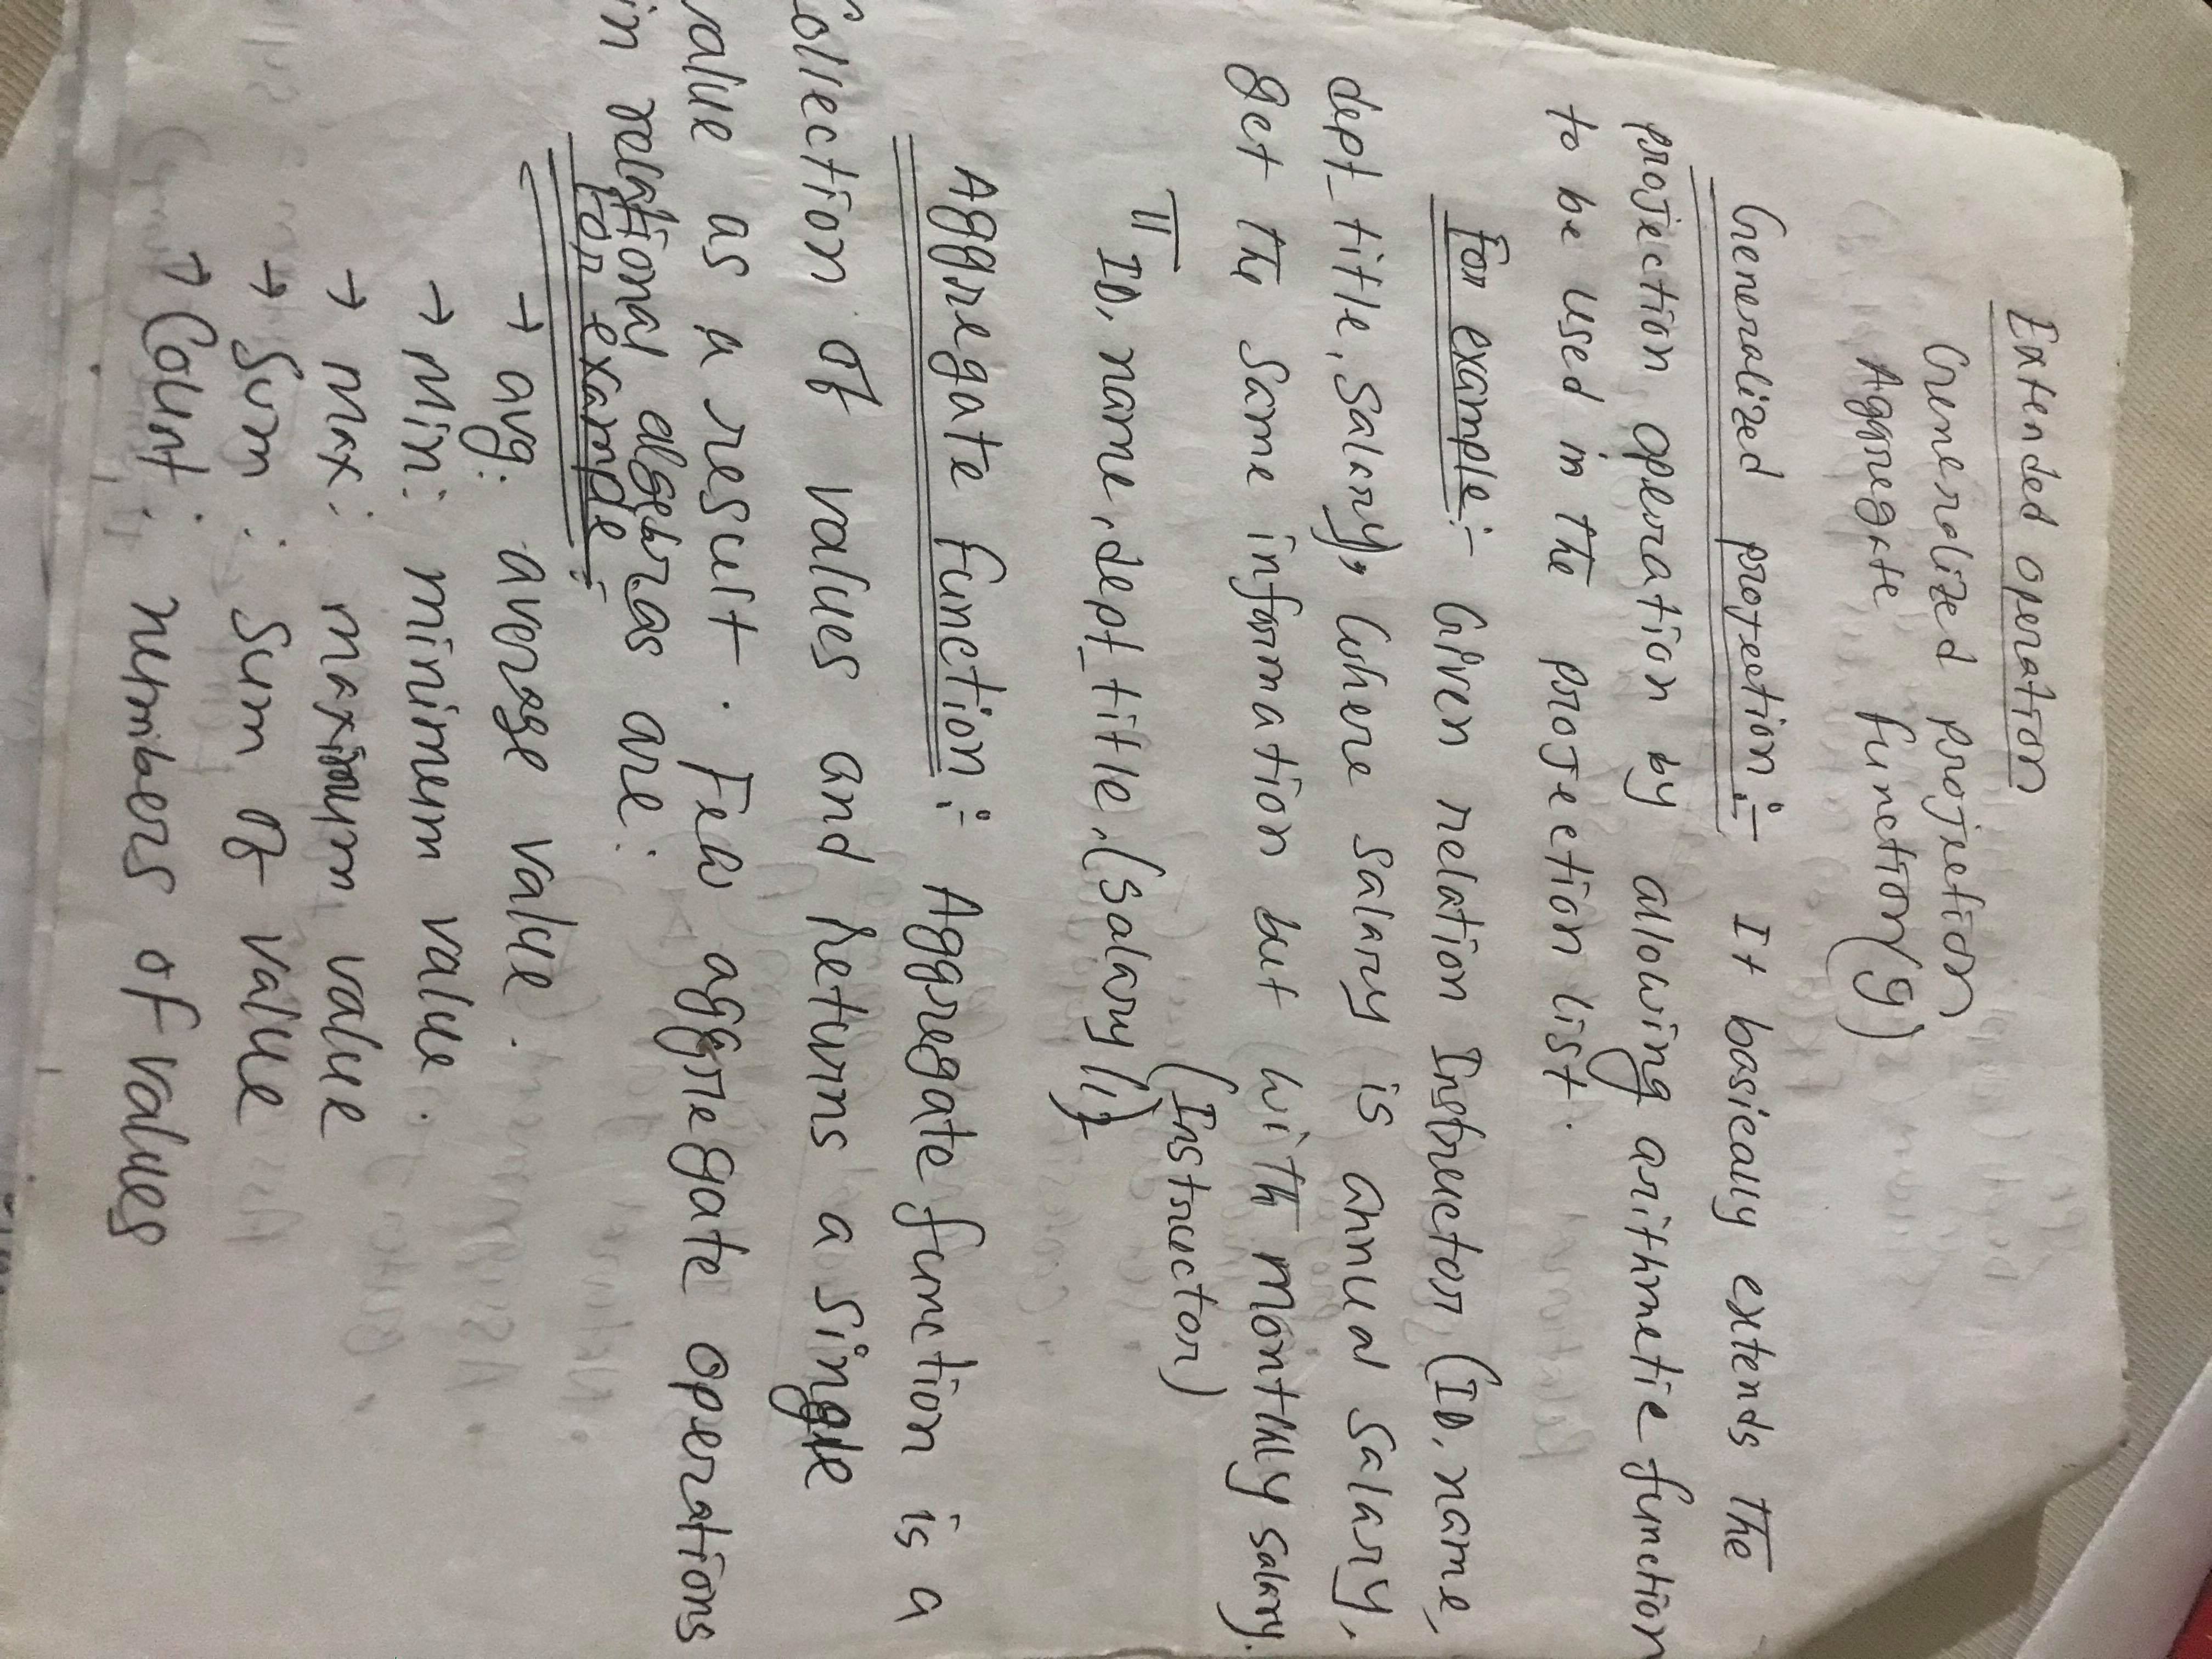 Extended operation
Generalized projection
Aggregate function(g)
Generalized projection :- It basically extends the
projection operation by allowing arithmetic function
to be used in the projection list.
For example:- Given relation Instructor (ID, name,
dept_title, salary), where salary is annual salary,
get the same information but with monthly salary.
π ID, name, dept_title, (salary/12) (Instructor)
Aggregate function :- Aggregate function is a
Collection of values and returns a single
value as a result. Few aggregate operations
in relational algebras are:
For example:-
→ avg: average value.
→ Min: minimum value.
→ Max: maximum value
→ Sum: Sum of value
→ Count: numbers of values